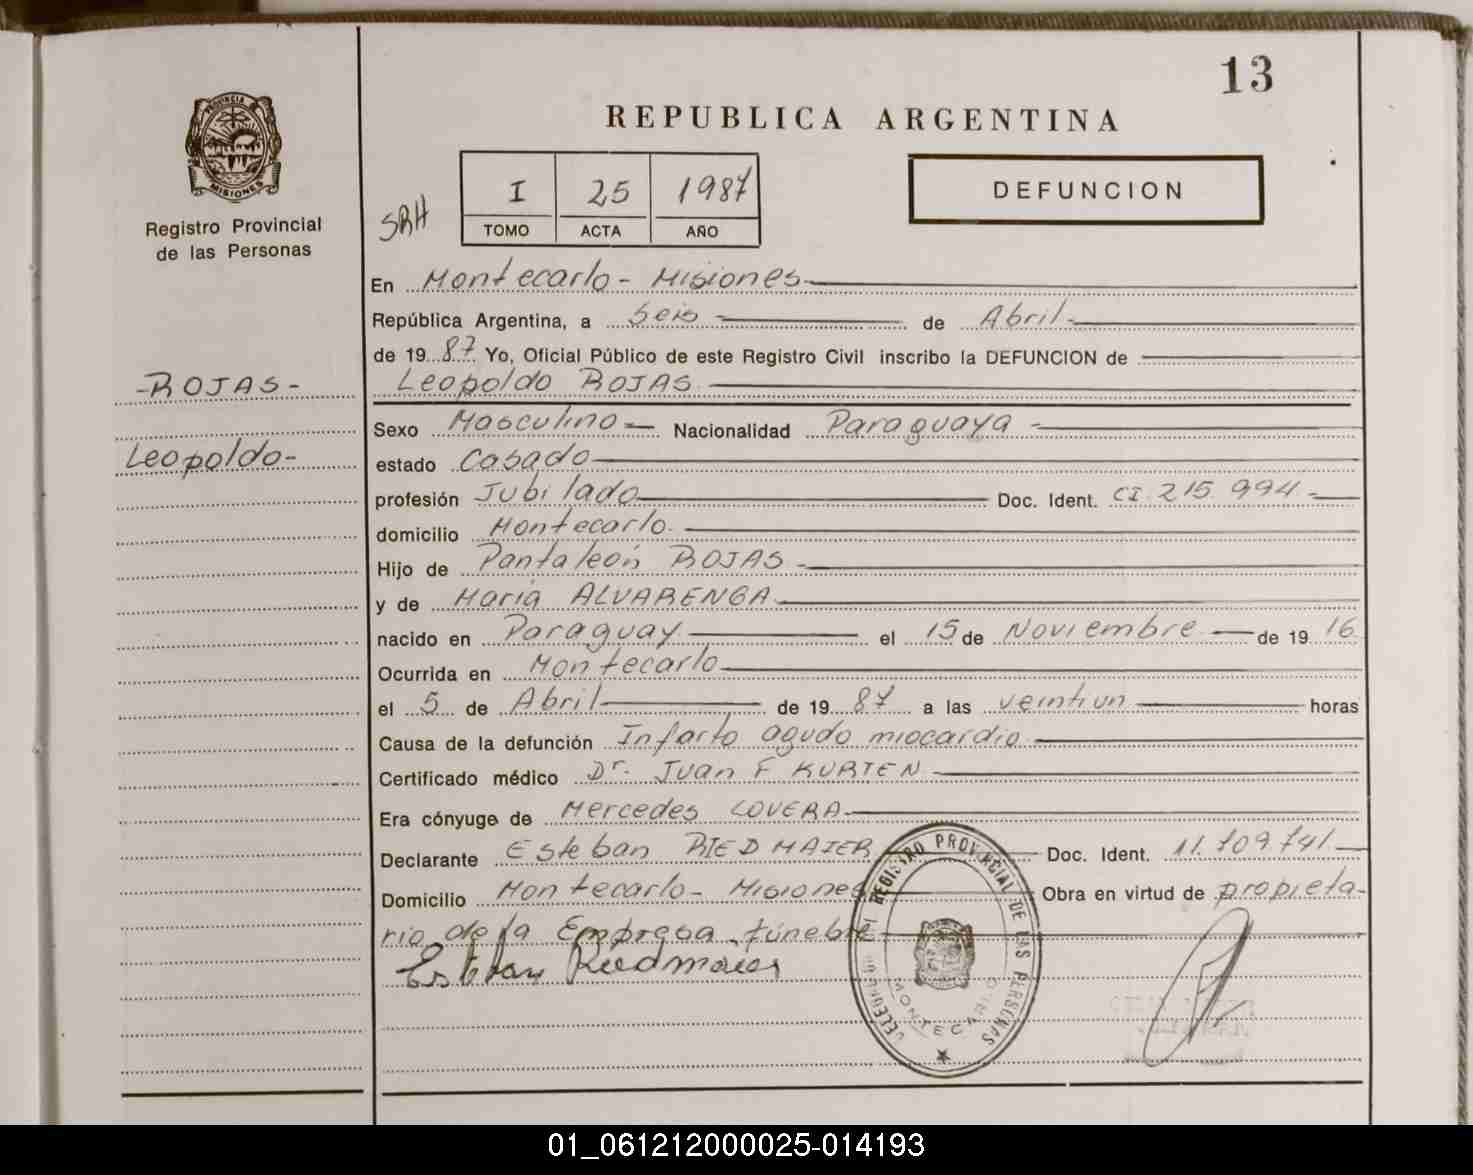 13
REPUBLICA ARGENTINA
PROVINCIA DE
MISIONES
Registro Provincial
de las Personas
SRH
I 25 1987
TOMO ACTA AÑO
DEFUNCION
En Montecarlo - Misiones
República Argentina, a Seis de Abril
de 19 87 Yo, Oficial Público de este Registro Civil inscribo la DEFUNCION de
-ROJAS-
Leopoldo ROJAS
Sexo Masculino Nacionalidad Paraguaya
Leopoldo-
estado Casado
profesión Jubilado Doc. Ident. CI. 215.994
domicilio Montecarlo
Hijo de Pantaleón ROJAS
y de María ALVARENGA
nacido en Paraguay el 15 de Noviembre de 19 16
Ocurrida en Montecarlo
el 5 de Abril de 19 87 a las veintiun horas
Causa de la defunción Infarto agudo miocardio
Certificado médico Dr. Juan F KURTEN
Era cónyuge de Mercedes LOVERA
Declarante Esteban RIEDMAIER Doc. Ident. 11.709.741
Domicilio Montecarlo - Misiones Obra en virtud de propieta-
rio de la Empresa fúnebre
Esteban Riedmaier
REGISTRO PROVINCIAL DE LAS PERSONAS
MONTECARLO
01_061212000025-014193